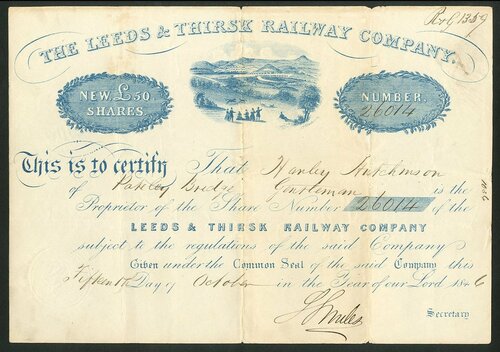 Rxd/1359
THE LEEDS & THIRSK RAILWAY COMPANY.
NEW £50 SHARES.
NUMBER. 26014
This is to certify That Hanley Hutchinson
of Pateley Bridge Gentleman is the
Proprietor of the Share Number 26014 of the
LEEDS & THIRSK RAILWAY COMPANY
subject to the regulations of the said Company
Given under the Common Seal of the said Company this
Fifteenth Day of October in the Year of our Lord 1846
S Smiles
Secretary